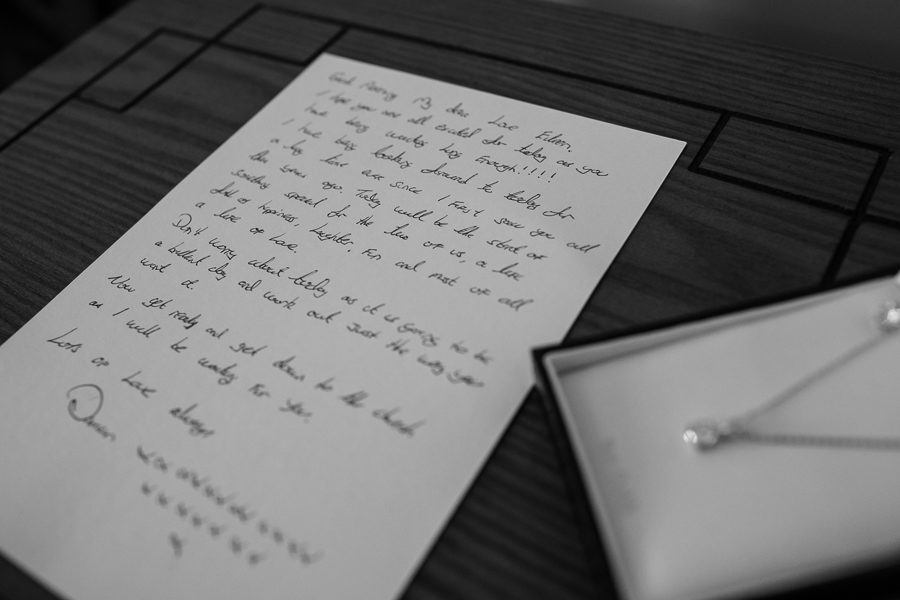 Good Morning My dear Love Eileen.
I hope you are all excited for today as you
have being waiting long Enough!!!!
I have being looking forward to today for
a long time ever since I First saw you all
them years ago. Today will be the start of
something special for the two of us, a life
full of happiness, laughter, Fun and most of all
a life of Love.
Don't worry about today as it is Going to be
a brilliant day and work out Just the way you
want it.
Now get ready and get down to the church
as I will be waiting For you.
Lots of Love always
x x x x x x x x x x x
x x x x x x x
x